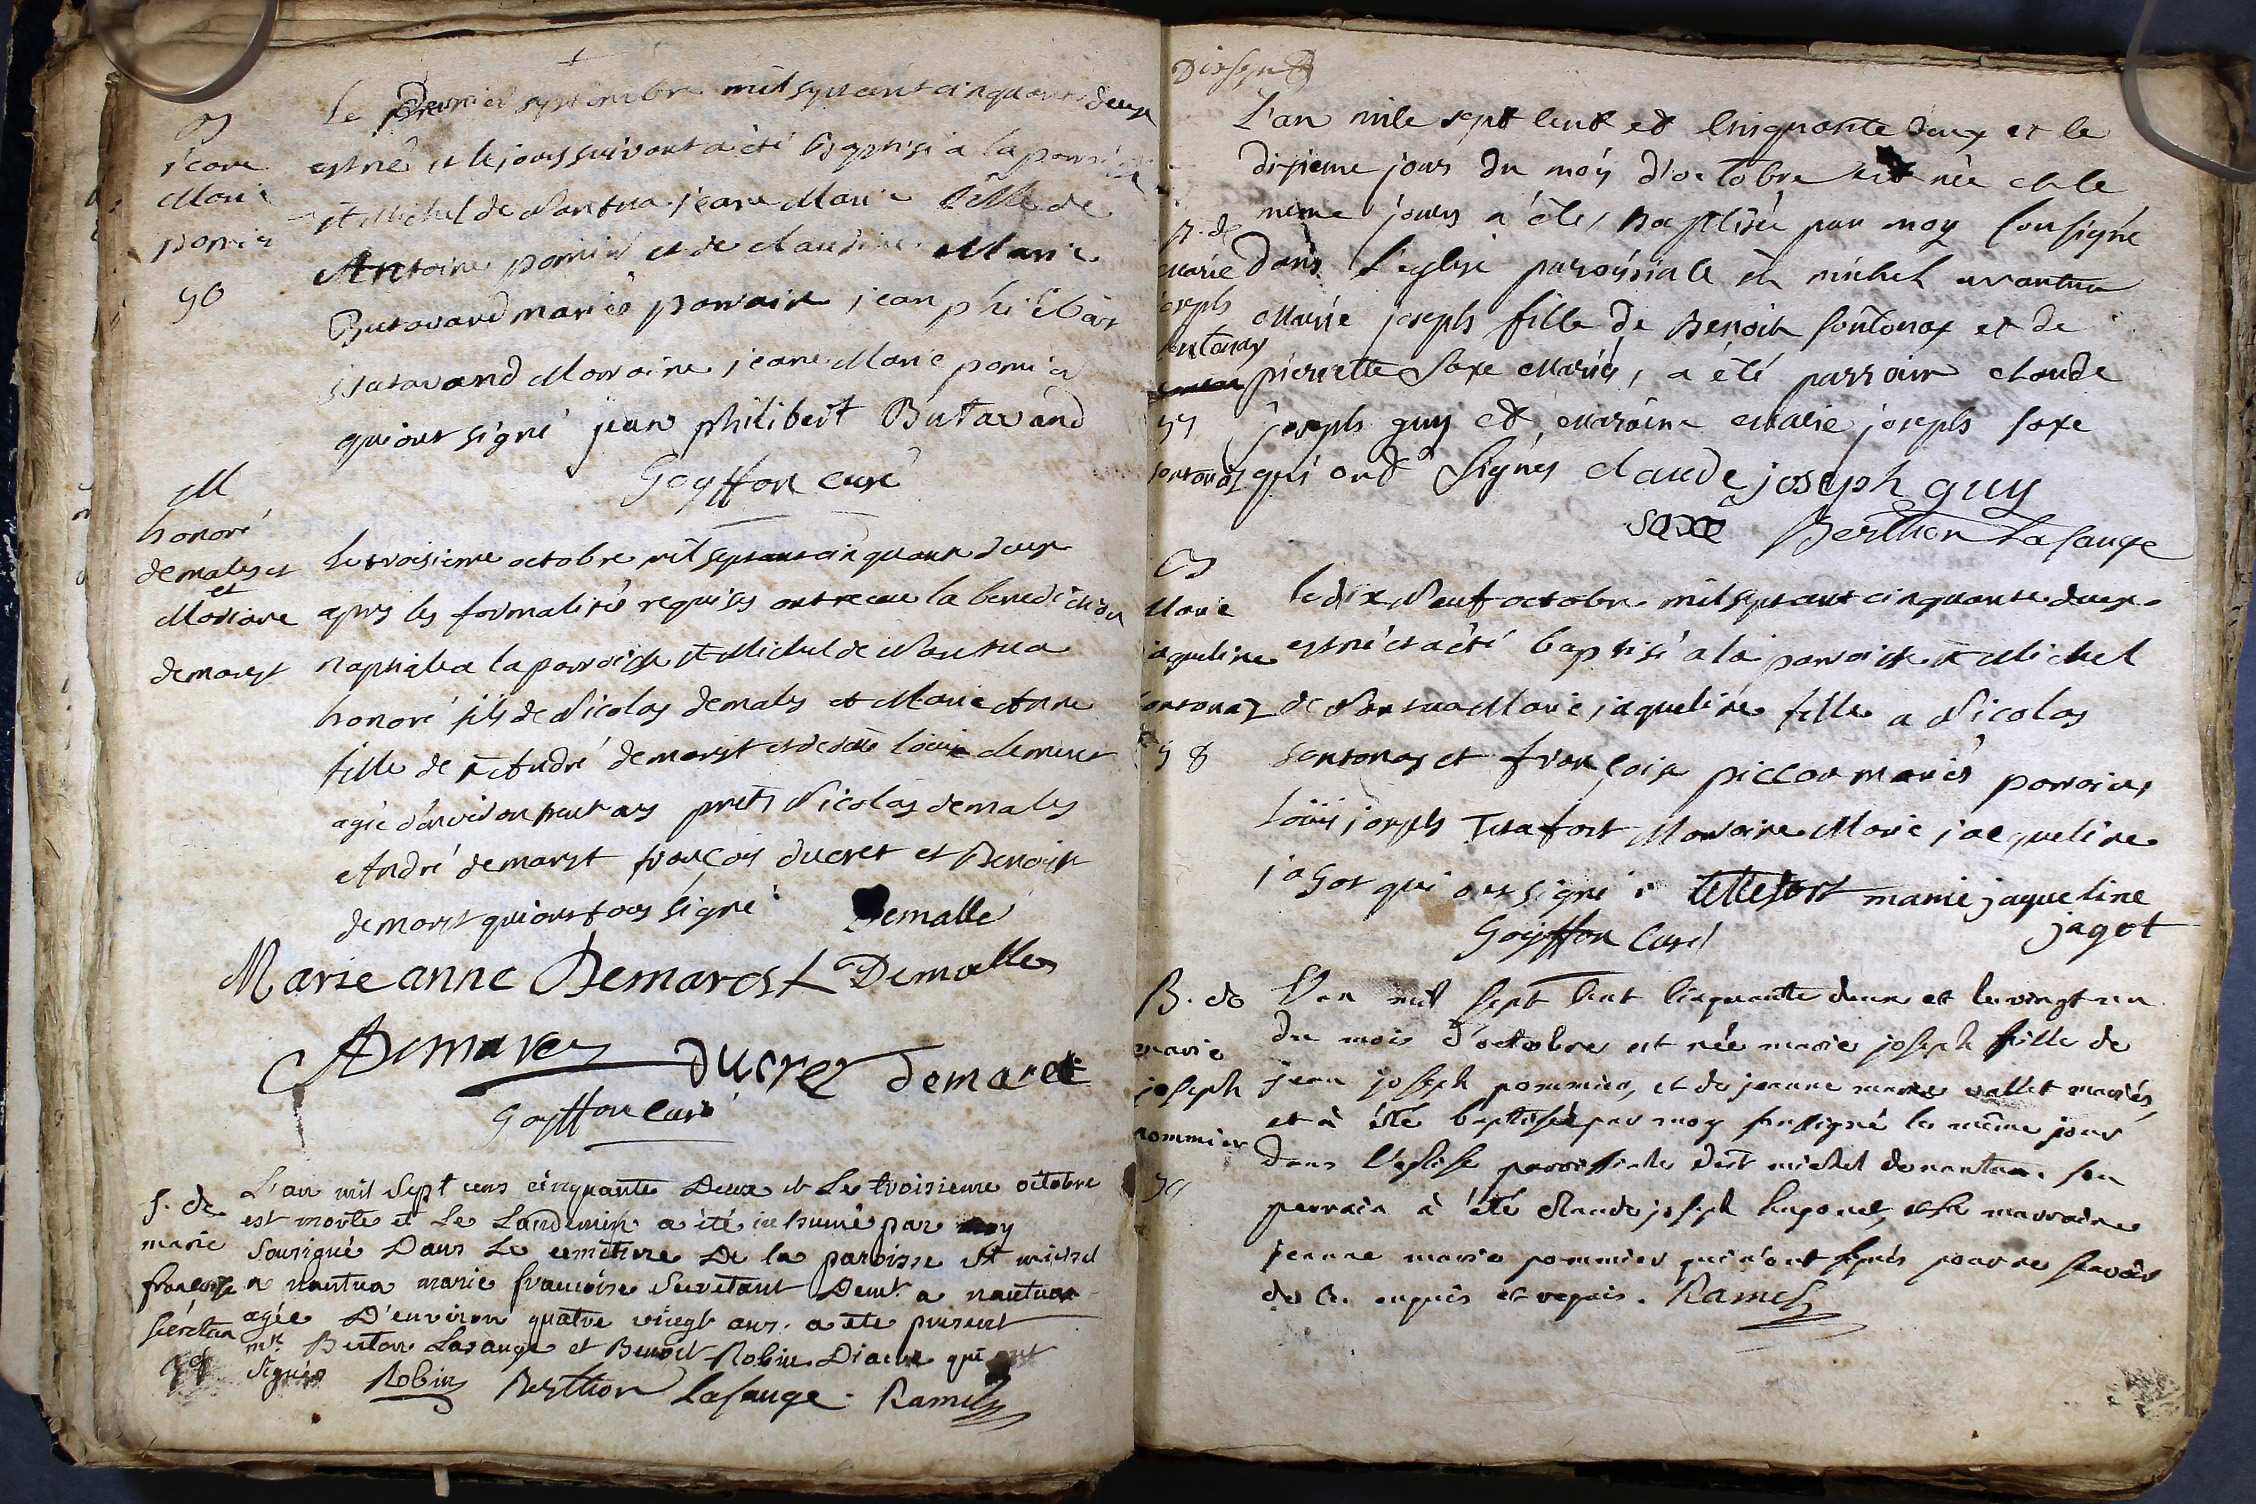 B
jeane
Marie
pomier
56
Le Dernier septembre mil sept cent cinquante deux
est née et le jour suivant a été baptisé a la paroisse
st Michel de Nantua jeane Marie fille de
Antoine pomier et de claudine Marie
Butavand mariés parrain jean philibert
Butavand Marraine jeane Marie pomier
qui ont signé jean philibert Butavand
Goyffon curé
M
honoré
demales
et
Mariane
demarest
Le troisieme octobre mil sept cent cinquante deux
apres les formalités requises ont receu la benediction
nuptiale a la parroisse st Michel de Nantua
honoré fils de Nicolas demales et Marie Anne
fille de André demarest et de Louise
agée d'environ trent ans prets Nicolas demales
André demarest françois ducret et Benoist
demarest qui ont tous signé Demalle
Marie anne Demarest Demalle
Demarez ducrez demaret
Goyffon curé
S. de
marie
françoise
L'an mil sept cens cinquante Deux et Le troisieme octobre
est morte et Le Landemin a été inhumé par moy
sousigné Dans Le cemitiere De la paroisse St michel
a nantua marie francoise Sevetant Deurt a nantua
agée D'environ quatre vingt ans. a ete present
mr. Berton Lasauge et Benoit Robin Diacre qui ont
signés Robin Berthon Lasauge. Ramel
B. de
marie
joseph
sontonax
57
sontonas
L'an mile sept cent et cinquante deux et le
dixieme jour du moy d'octobre est née et le
meme jours a été baptisée par moy sousigné
dans L'eglise paroissiale st michel a nantua
Marie joseph fille de Benoit sontonax et de
pierrette Saxe Mariés, a été parrain claude
joseph guy et Maraine Marie joseph saxe
qui ont signés claude joseph guy
saxe Berthon Lasauge
B
Marie
jaqueline
sontonaz
58
le dix Neuf octobre mil sept cent cinquante deux
est né et a été baptisé a la parroisse st Michel
de Nantua Marie jaqueline fille a Nicolas
sontonas et françoise piccon mariés parrain
Louis joseph Tetafort Marraine Marie jacqueline
jagot qui ont signé tettefort marie jaqueline
Goyffon Curé jagot
B. de
marie
joseph
pommier
59
L'an mil sept cent cinquante deux et le vingt un
du mois d'octobre est née marie joseph fille de
jean joseph pommier, et de jeanne marie vallet mariés,
et à été baptisée par moy soussigné le même jour
dans l'eglise parroissiale de st michel de nantua. son
parrain à été claude joseph et la marraine
jeanne marie pommier qui n'ont signés pour ne scavoir
de ce enquis et requis. Ramel